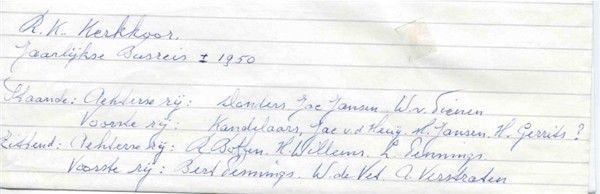 R.K. Kerkkoor.
Jaarlijkse Busreis ± 1950
Staande: Achterse rij: Donders, Jac Jansen, W.v. Tienen
Voorste rij: Kandelaars, Jac v.d. Heuij, M. Jansen, H. Gerrits?
Zittend: Achterse rij: A. Botzen. H. Willems, L. Tennings
Voorste rij: Bert Tennings. W. de Vet. A. Verstraten